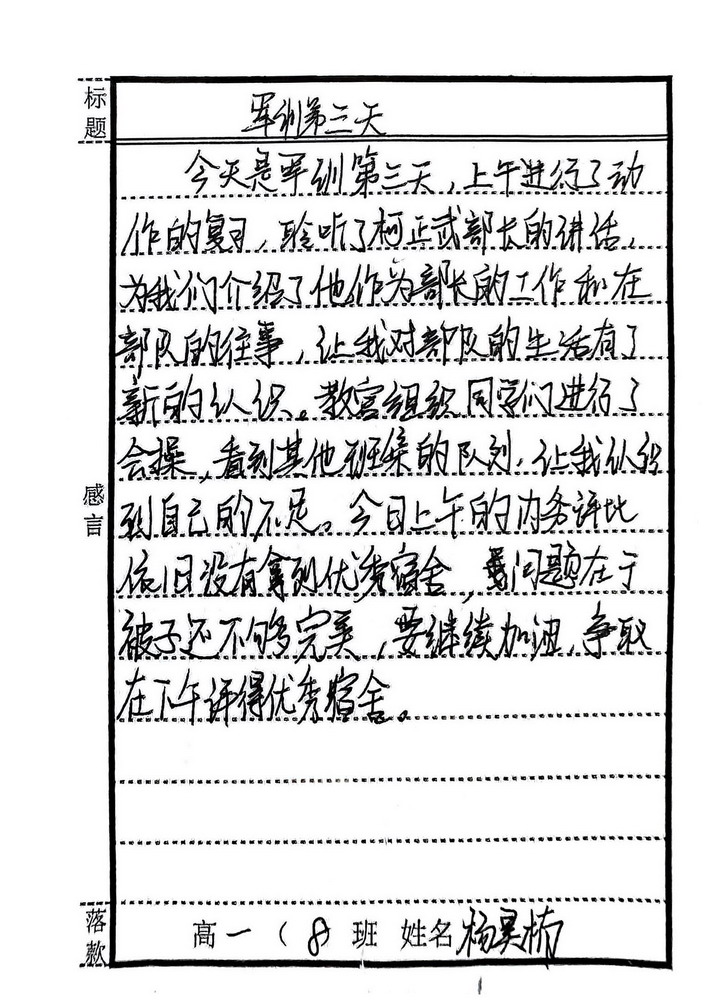 标题
军训第三天
今天是军训第三天，上午进行了动
作的复习，聆听了柯正武部长的讲话，
为我们介绍了他作为部长的工作和在
部队的往事，让我对部队的生活有了
新的认识。教官组织同学们进行了
会操，看到其他班集的队列，让我认识
到自己的不足。今日上午的内务评比
依旧没有拿到优秀宿舍，问题在于
被子还不够完美，要继续加油，争取
在下午评得优秀宿舍。
感言
落款
高一（8班 姓名杨昊楠